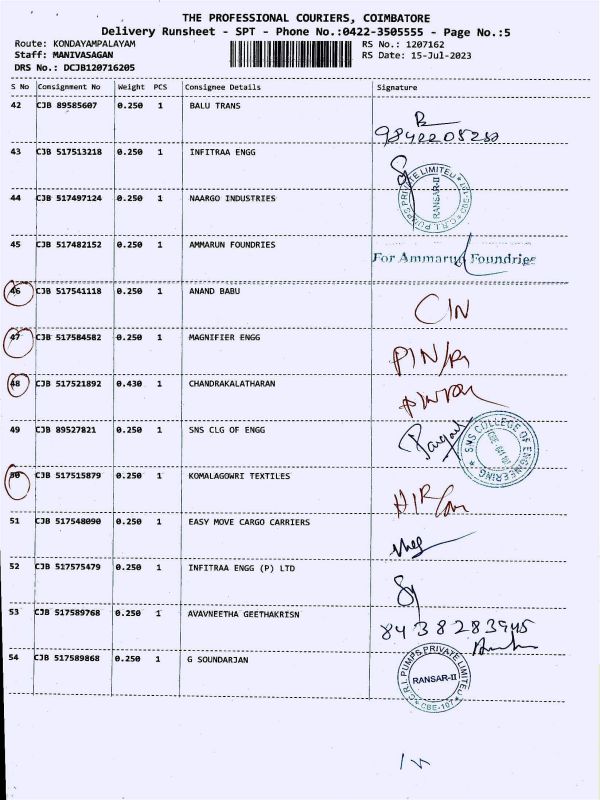 THE PROFESSIONAL COURIERS, COIMBATORE
Delivery Runsheet - SPT - Phone No.:0422-3505555 - Page No.:5
Route: KONDAYAMPALAYAM RS No.: 1207162
Staff: MANIVASAGAN RS Date: 15-Jul-2023
DRS No.: DCJB120716205
S No Consignment No Weight PCS Consignee Details Signature
42 CJB 89585607 0.250 1 BALU TRANS
9842205250
43 CJB 517513218 0.250 1 INFITRAA ENGG
C.R.I. PUMPS PRIVATE LIMITED
RANSAR-II
44 CJB 517497124 0.250 1 NAARGO INDUSTRIES
45 CJB 517482152 0.250 1 AMMARUN FOUNDRIES
For Ammarun Foundries
46 CJB 517541118 0.250 1 ANAND BABU
C/N
47 CJB 517584582 0.250 1 MAGNIFIER ENGG
48 CJB 517521892 0.430 1 CHANDRAKALATHARAN
49 CJB 89527821 0.250 1 SNS CLG OF ENGG
SNS COLLEGE OF ENGINEERING
50 CJB 517515879 0.250 1 KOMALAGOWRI TEXTILES
51 CJB 517548090 0.250 1 EASY MOVE CARGO CARRIERS
52 CJB 517575479 0.250 1 INFITRAA ENGG (P) LTD
53 CJB 517589768 0.250 1 AVAVNEETHA GEETHAKRISN
8438283945
54 CJB 517589868 0.250 1 G SOUNDARJAN
C.R.I. PUMPS PRIVATE LIMITED
RANSAR-II
CBE-107